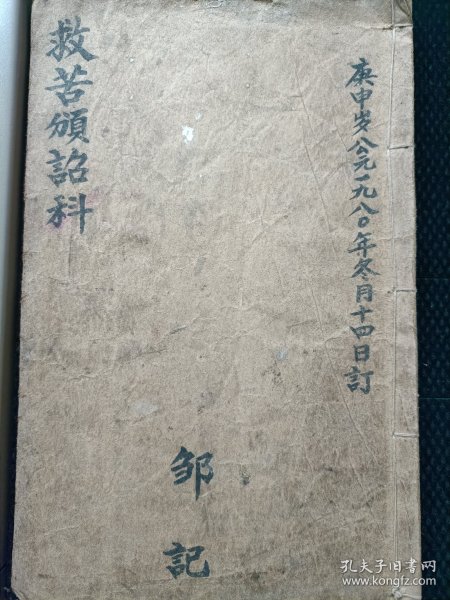 庚申岁公元一九八〇年冬月十四日訂
救苦頒詔科
邹記
孔夫子旧书网
www.kongfz.com